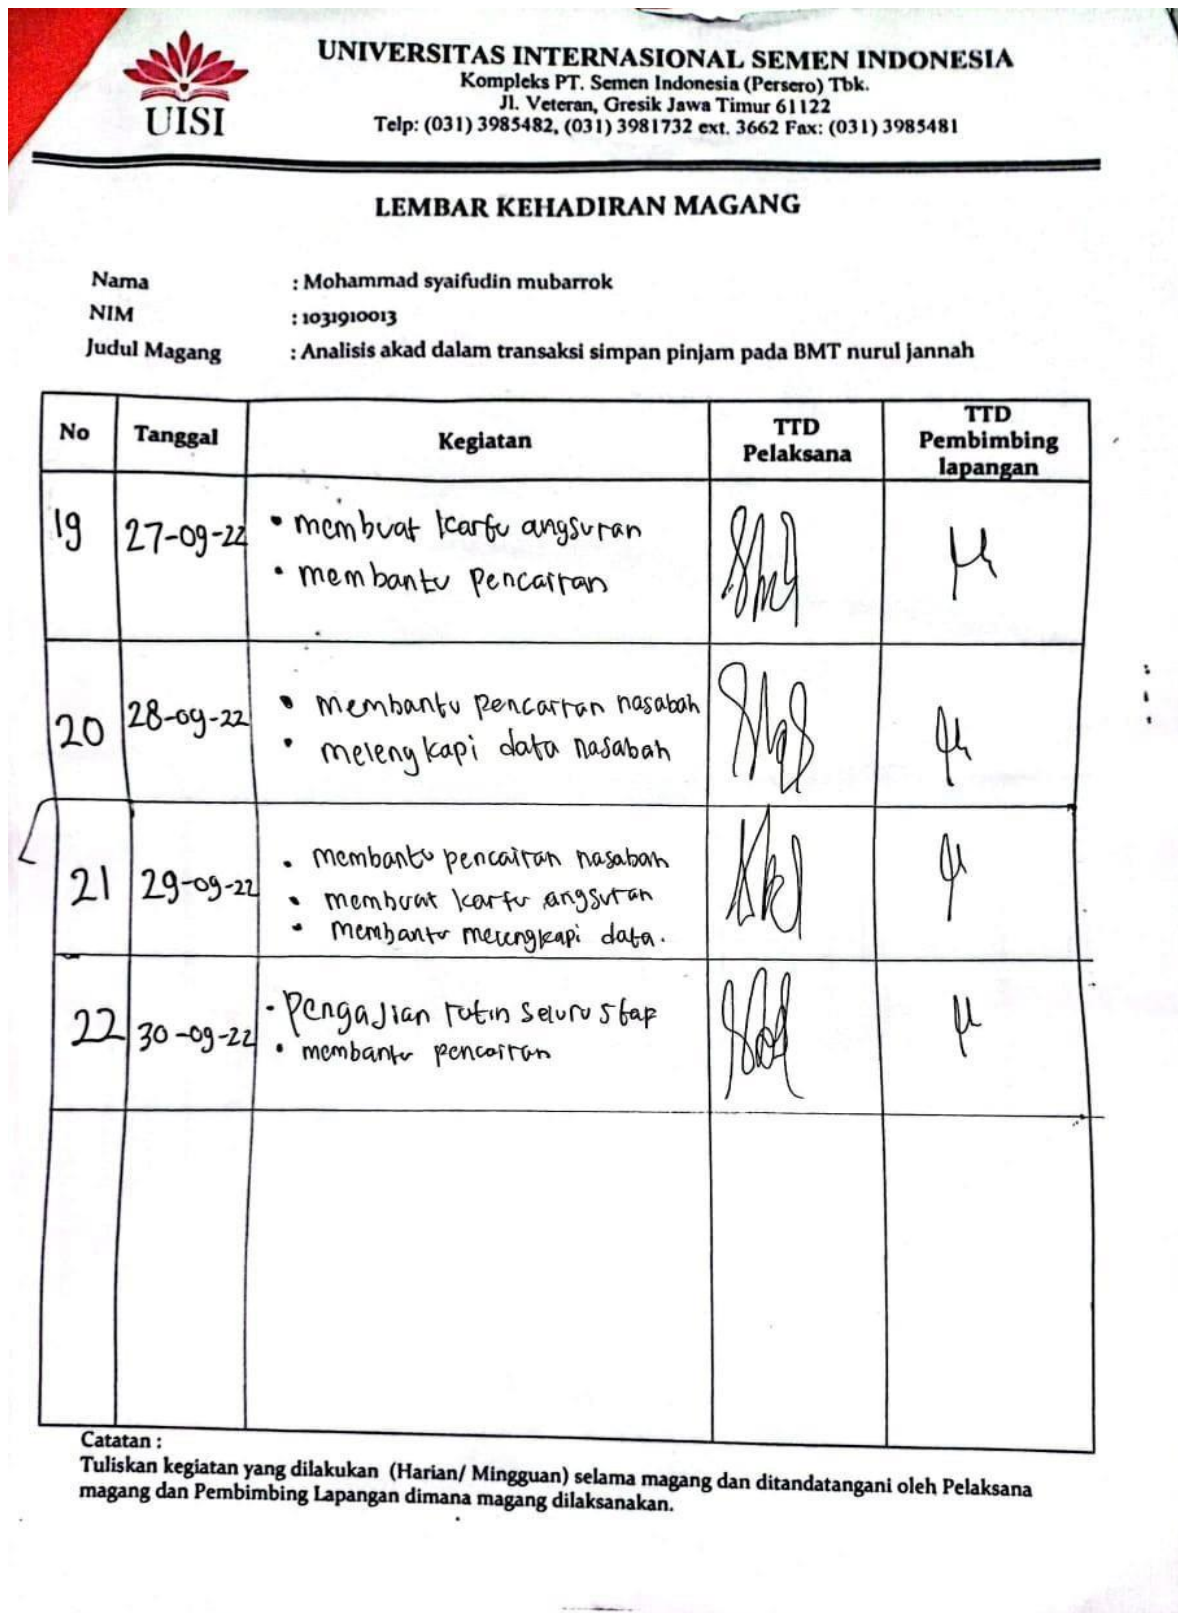 UISI
UNIVERSITAS INTERNASIONAL SEMEN INDONESIA
Kompleks PT. Semen Indonesia (Persero) Tbk.
Jl. Veteran, Gresik Jawa Timur 61122
Telp: (031) 3985482, (031) 3981732 ext. 3662 Fax: (031) 3985481
LEMBAR KEHADIRAN MAGANG
Nama : Mohammad syaifudin mubarrok
NIM : 1031910013
Judul Magang : Analisis akad dalam transaksi simpan pinjam pada BMT nurul jannah
No Tanggal Kegiatan TTD Pelaksana TTD Pembimbing lapangan
19 27-09-22 • membuat kartu angsuran
• membantu pencairan
20 28-09-22 • membantu pencairan nasabah
• melengkapi data nasabah
21 29-09-22 • membantu pencairan nasabah
• membuat kartu angsuran
• membantu melengkapi data.
22 30-09-22 - Pengajian rutin seluru stap
• membantu pencairan
Catatan :
Tuliskan kegiatan yang dilakukan (Harian/ Mingguan) selama magang dan ditandatangani oleh Pelaksana
magang dan Pembimbing Lapangan dimana magang dilaksanakan.